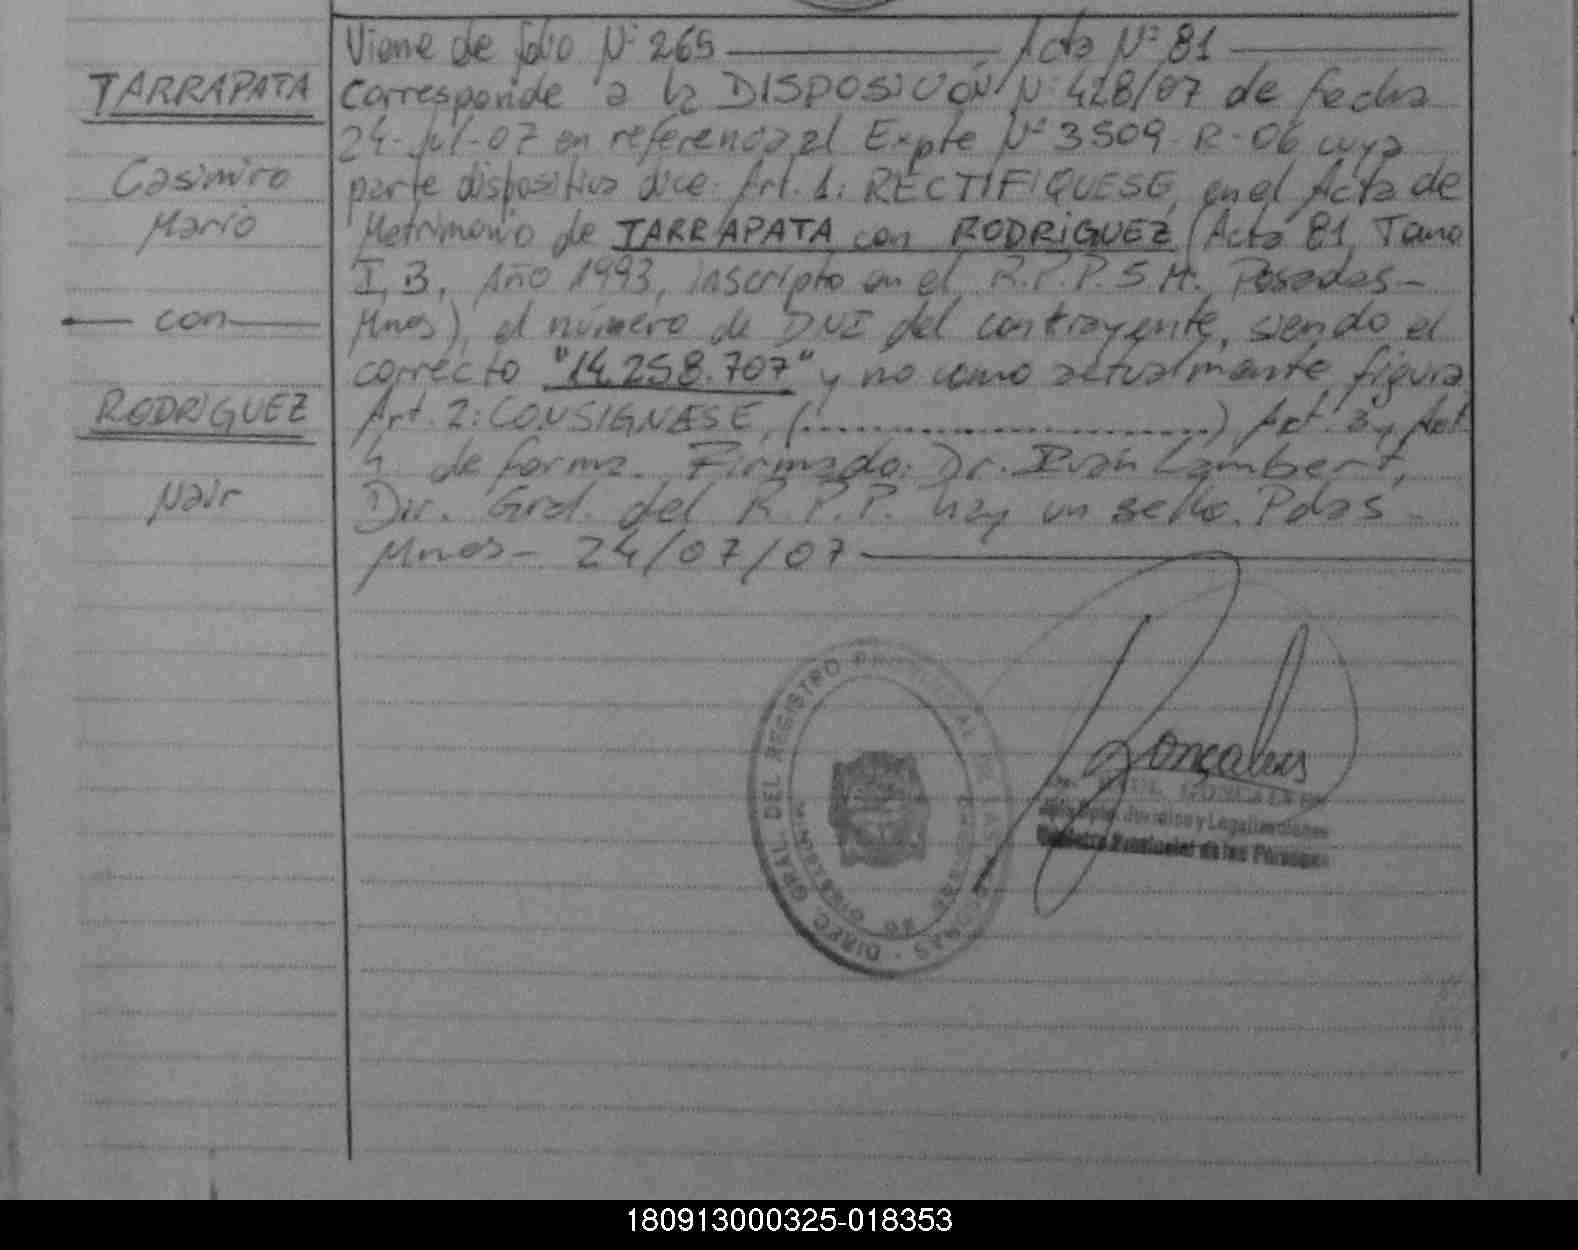 Viene de folio Nº 265 Acta Nº 81
TARRAPATA
Casimiro
Mario
con
RODRIGUEZ
Nair
Corresponde a la DISPOSICIÓN Nº 428/07 de fecha
24-Jul-07 en referencia al Expte Nº 3509-R-06 cuya
parte dispositiva dice: Art. 1: RECTIFIQUESE, en el Acta de
Matrimonio de TARRAPATA con RODRIGUEZ (Acta 81, Tomo
I, B, Año 1993, inscripto en el R.P.P. S.M. Posadas-
Mnes), el número de DNI del contrayente, siendo el
correcto "14.258.707" y no como actualmente figura
Art. 2: CONSIGNESE, (..............................) Art. 3 y Art
4 de forma. Firmado: Dr. Iván Lambert,
Dir. Gral. del R.P.P. hay un sello. Pdas-
Mnes- 24/07/07
DIREC. GRAL. DEL REGISTRO PROVINCIAL DE LAS PERSONAS
Gonçalves
Jurídico y Legalizaciones
Registro Provincial de las Personas
180913000325-018353